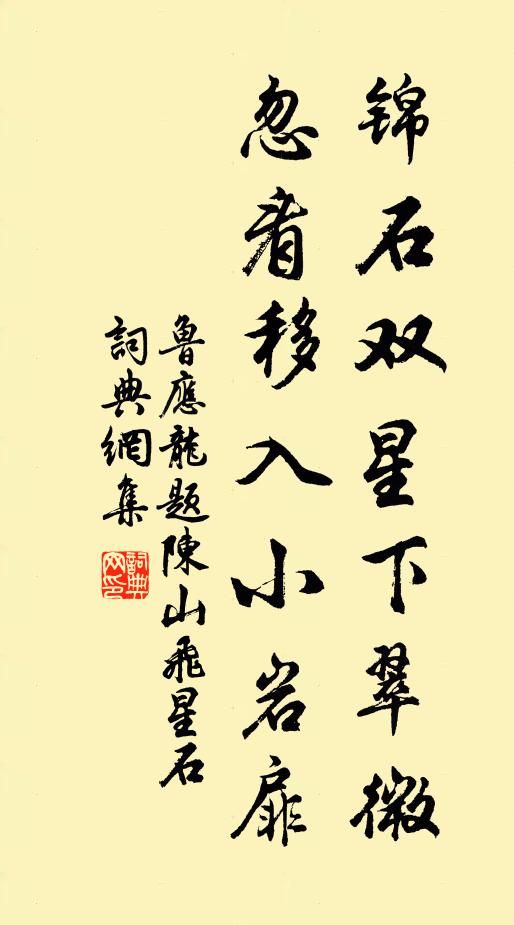 锦石双星下翠微
忽看移入小岩扉
魯應龍题陳山飛星石
詞典網集
詞典網印